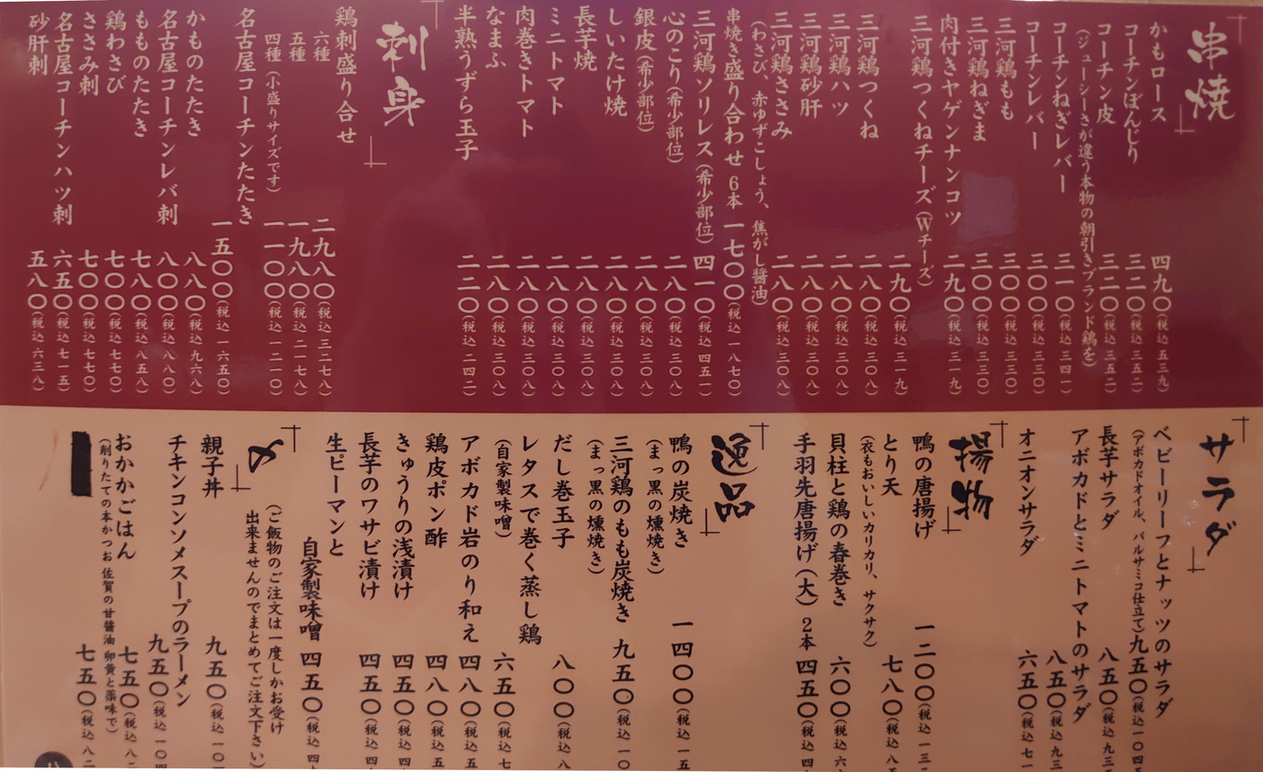 串焼
かもロース 四九〇(税込 五三九)
コーチンぼんじり 三二〇(税込 三五二)
コーチン皮 三二〇(税込 三五二)
(ジューシーさが違う本物の朝引きブランド鶏を)
コーチンねぎレバー 三一〇(税込 三四一)
コーチンレバー 三〇〇(税込 三三〇)
三河鶏もも 三〇〇(税込 三三〇)
三河鶏ねぎま 三〇〇(税込 三三〇)
肉付きヤゲンナンコツ 二九〇(税込 三一九)
三河鶏つくねチーズ(Wチーズ)
二九〇(税込 三一九)
三河鶏つくね 二八〇(税込 三〇八)
三河鶏ハツ 二八〇(税込 三〇八)
三河鶏砂肝 二八〇(税込 三〇八)
三河鶏ささみ 二八〇(税込 三〇八)
(わさび、赤ゆずこしょう、焦がし醤油)
串焼き盛り合わせ 6本 一七〇〇(税込 一八七〇)
三河鶏ソリレス(希少部位) 四一〇(税込 四五一)
心のこり(希少部位) 二八〇(税込 三〇八)
銀皮(希少部位) 二八〇(税込 三〇八)
しいたけ焼 二八〇(税込 三〇八)
長芋焼 二八〇(税込 三〇八)
ミニトマト 二八〇(税込 三〇八)
肉巻きトマト 二八〇(税込 三〇八)
なまふ 二八〇(税込 三〇八)
半熟うずら玉子 二二〇(税込 二四二)
刺身
鶏刺盛り合せ
六種 二九八〇(税込 三二七八)
五種 一九八〇(税込 二一七八)
四種(小盛りサイズです) 一一〇〇(税込 一二一〇)
名古屋コーチンたたき
一五〇〇(税込 一六五〇)
かものたたき 八八〇(税込 九六八)
名古屋コーチンレバ刺 八〇〇(税込 八八〇)
もものたたき 七八〇(税込 八五八)
鶏わさび 七〇〇(税込 七七〇)
ささみ刺 七〇〇(税込 七七〇)
名古屋コーチンハツ刺 六五〇(税込 七一五)
砂肝刺 五八〇(税込 六三八)
サラダ
ベビーリーフとナッツのサラダ
(アボカドオイル、バルサミコ仕立て)九五〇(税込 一〇四五
長芋サラダ 八五〇(税込 九三
アボカドとミニトマトのサラダ
八五〇(税込 九三
オニオンサラダ 六五〇(税込 七一
揚物
鴨の唐揚げ 一二〇〇(税込 一三二
とり天 七八〇(税込 八五
(衣もおいしいカリカリ、サクサク)
貝柱と鶏の春巻き 六〇〇(税込 六
手羽先唐揚げ(大)2本 四五〇(税込 四
逸品
鴨の炭焼き 一四〇〇(税込 一五
(まっ黒の燻焼き)
三河鶏のもも炭焼き 九五〇(税込 一〇
(まっ黒の燻焼き)
だし巻玉子 八〇〇(税込 八
レタスで巻く蒸し鶏
(自家製味噌) 六五〇(税込 七
アボカド岩のり和え 四八〇(税込 五
鶏皮ポン酢 四八〇(税込 五
きゅうりの浅漬け 四五〇(税込 四
長芋のワサビ漬け 四五〇(税込 四
生ピーマンと
自家製味噌 四五〇(税込 四
〆
(ご飯物のご注文は一度しかお受け
出来ませんのでまとめてご注文下さい)
親子丼 九五〇(税込 一〇
チキンコンソメスープのラーメン
九五〇(税込 一〇四
おかかごはん 七五〇(税込 八二
(削りたての本かつお 佐賀の甘醤油 卵黄と薬味で)
七五〇(税込 八二